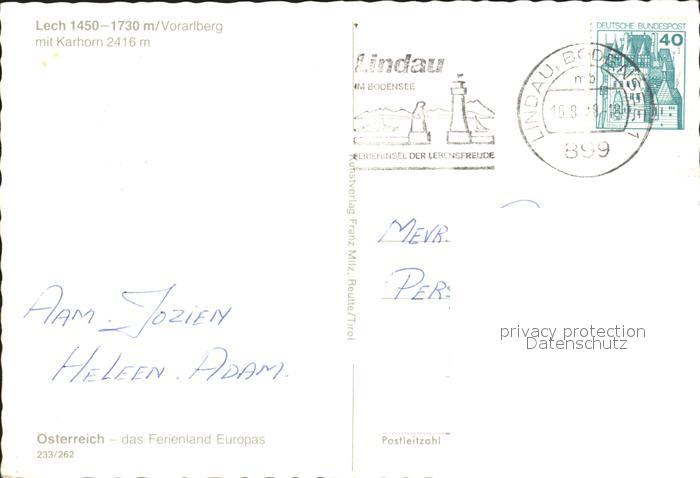 Lech 1450–1730 m/Vorarlberg
mit Karhorn 2416 m
Lindau
IM BODENSEE
FERIENINSEL DER LEBENSFREUDE
LINDAU, BODENSEE 1
mb
899
DEUTSCHE BUNDESPOST
40
Kunstverlag Franz Milz, Reutte/Tirol
MEVR.
PERS
AAM. JOZIEN
HELEEN. ADAM.
privacy protection
Datenschutz
Österreich – das Ferienland Europas
233/262
Postleitzahl